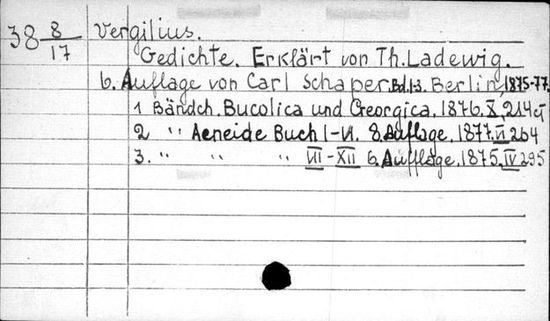 38 8/17 Vergilius.
Gedichte. Erklärt von Th. Ladewig.
6. Auflage von Carl Schaper. Bd.1-3. Berlin, 1875-77.
1 Bändch. Bucolica und Georgica. 1876. X, 214 S
2 " Aeneide Buch I-VI. 8. Auflage. 1877. VI 264
3. " " " VII-XII 6. Auflage. 1875. IV 295